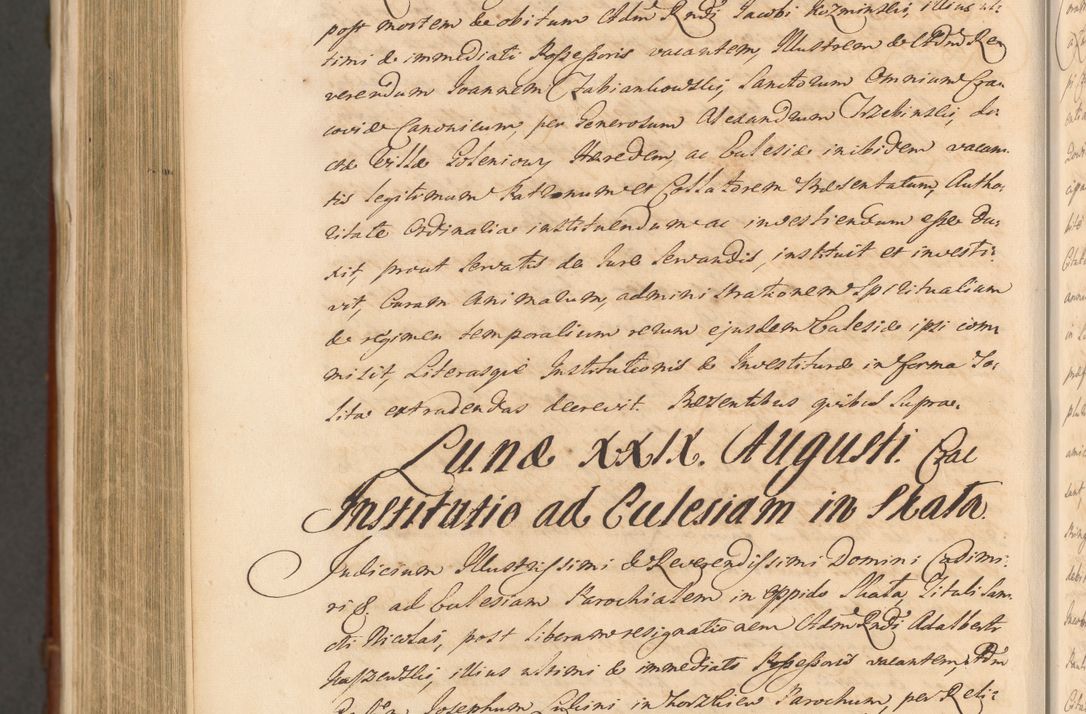 post mortem & obitum Adm Rndi Jacobi Kozminski, illius ul:
timi & immediati Possessoris vacantem, Illustrem & Adm Re
verendum Joannem Zabiankowski, Sanctorum Omnium Cra
coviæ Canonicum, per Generosum Alexandrum Trzebinski, du
cæ Villæ Goleniowy Hæredem, ac Ecclesiæ inibidem vacan
tis legitimum Patronum et Collatorem Præsentatum, Autho,
ritate Ordinaria instituendum ac investiendum esse du:
xit, prout servatis de Jure servandis, instituit et investi:
vit, Curam Animarum, administrationem Spiritualium
& regimen temporalium rerum ejusdem Ecclesiæ ipsi com
misit, Literasque Institutionis & Investituræ in forma So,
lita extradendas decrevit. Præsentibus quibus supra.
Lunæ XXIX. Augusti. Crac
Institutio ad Ecclesiam in Skała.
Judicium Illustrissimi & Reverendissimi Domini Cadimi:
ri &. ad Ecclesiam Parochialem in oppido Skała, Tituli San
cti Nicolai, post liberam resignationem Adm Rndi Adalberti
illius ultimi & immediati Possessoris vacantem, Adm
Josephum in Parochum, per Reli: